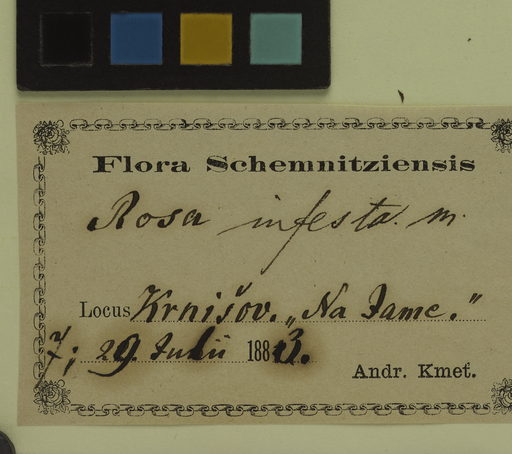 Flora Schemnitziensis
Rosa infesta. m.
Locus Krnišov. „Na Jame.“
7; 29. Julii 1883.
Andr. Kmeť.